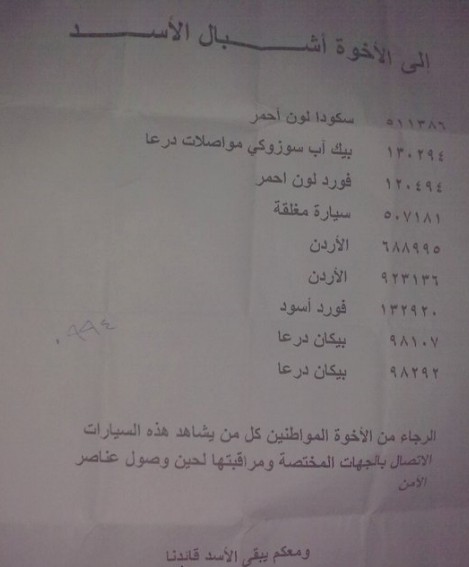 الى الأخوة أشبال الأسد
٥١١٣٨٦ سكودا لون أحمر
١٣٠٢٩٤ بيك آب سوزوكي مواصلات درعا
١٢٠٤٩٤ فورد لون احمر
٥٠٧١٨١ سيارة مغلقة
٦٨٨٩٩٥ الأردن
٩٢٣١٣٦ الأردن
١٣٢٩٢٠ فورد أسود
٩٨١٠٧ بيكان درعا
٩٨٢٩٢ بيكان درعا
الرجاء من الأخوة المواطنين كل من يشاهد هذه السيارات
الاتصال بالجهات المختصة ومراقبتها لحين وصول عناصر
الأمن
ومعكم يبقى الأسد قائدنا